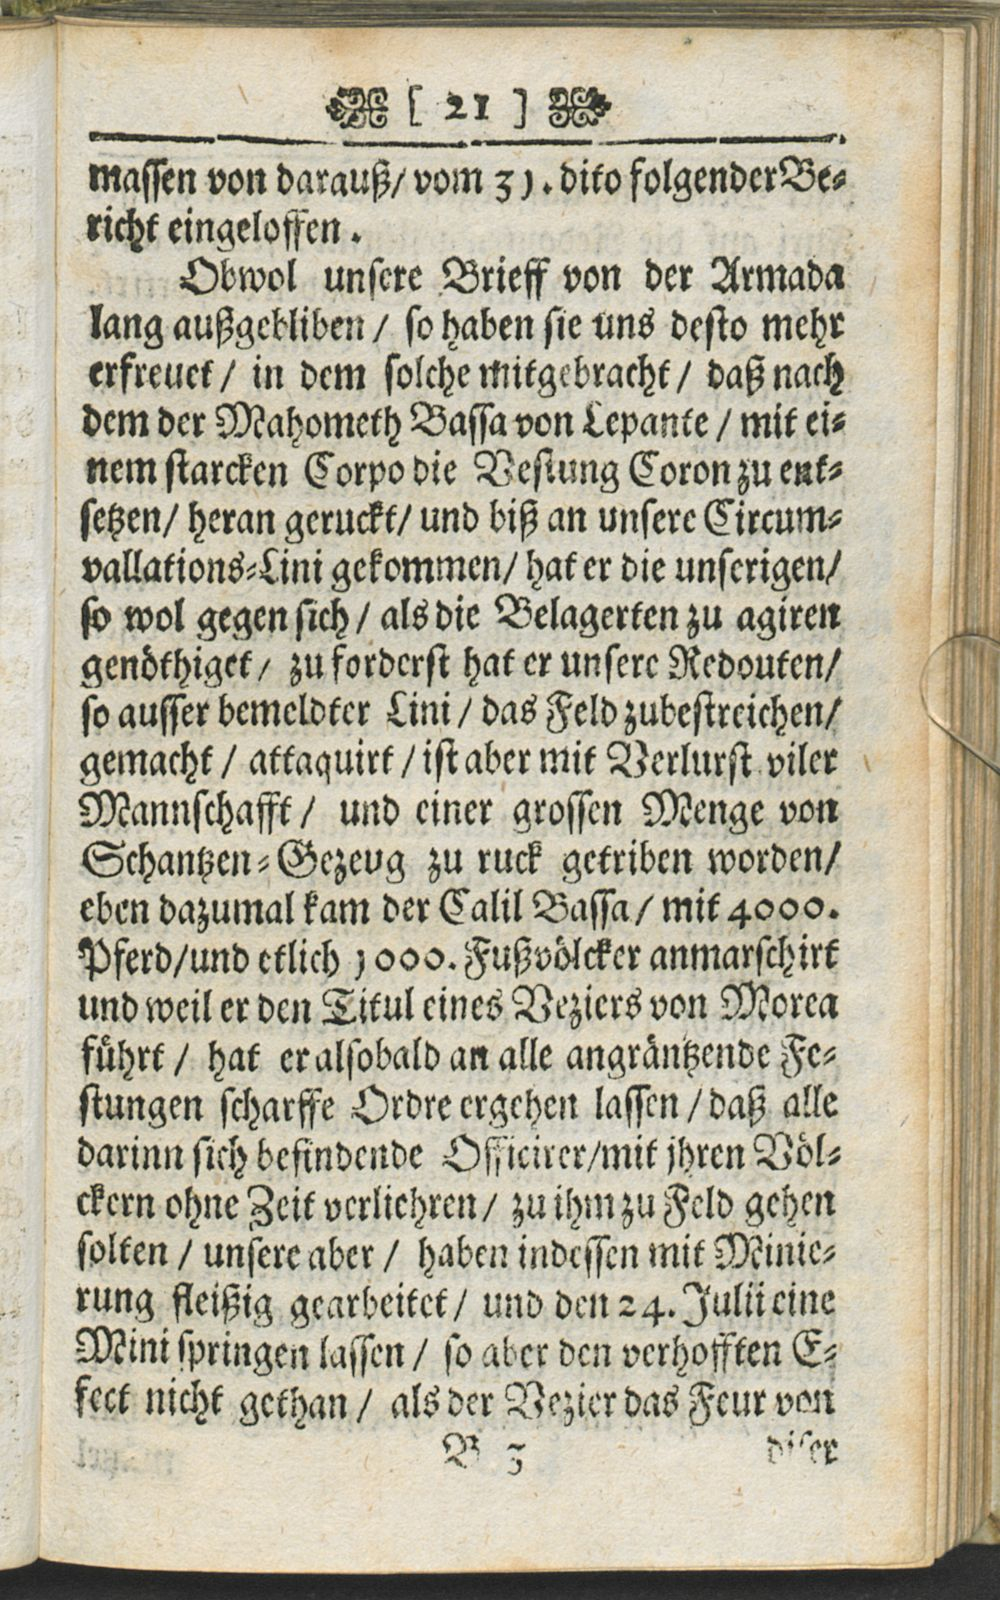 [ 21 ]
massen von darauß/ vom 31. dito folgender Be-
richt eingeloffen.
Obwol unsere Brieff von der Armada
lang außgebliben / so haben sie uns desto mehr
erfreuet / in dem solche mitgebracht / daß nach
dem der Mahometh Bassa von Lepante / mit ei-
nem starcken Corpo die Vestung Coron zu ent-
setzen/ heran geruckt/ und biß an unsere Circum-
vallations-Lini gekommen/ hat er die unserigen/
so wol gegen sich / als die Belagerten zu agiren
genöthiget / zu forderst hat er unsere Redouten/
so ausser bemeldter Lini / das Feld zubestreichen/
gemacht / attaquirt / ist aber mit Verlurst viler
Mannschafft / und einer grossen Menge von
Schantzen-Gezeug zu ruck getriben worden/
eben dazumal kam der Calil Bassa / mit 4000.
Pferd/und etlich 1000. Fußvölcker anmarschirt
und weil er den Titul eines Veziers von Morea
führt / hat er alsobald an alle angräntzende Fe-
stungen scharffe Ordre ergehen lassen / daß alle
darinn sich befindende Officirer/mit jhren Völ-
ckern ohne Zeit verliehren / zu ihm zu Feld gehen
solten / unsere aber / haben indessen mit Minie-
rung fleißig gearbeitet / und den 24. Julii eine
Mini springen lassen / so aber den verhofften E-
fect nicht gethan / als der Vezier das Feur von
B 3 diser